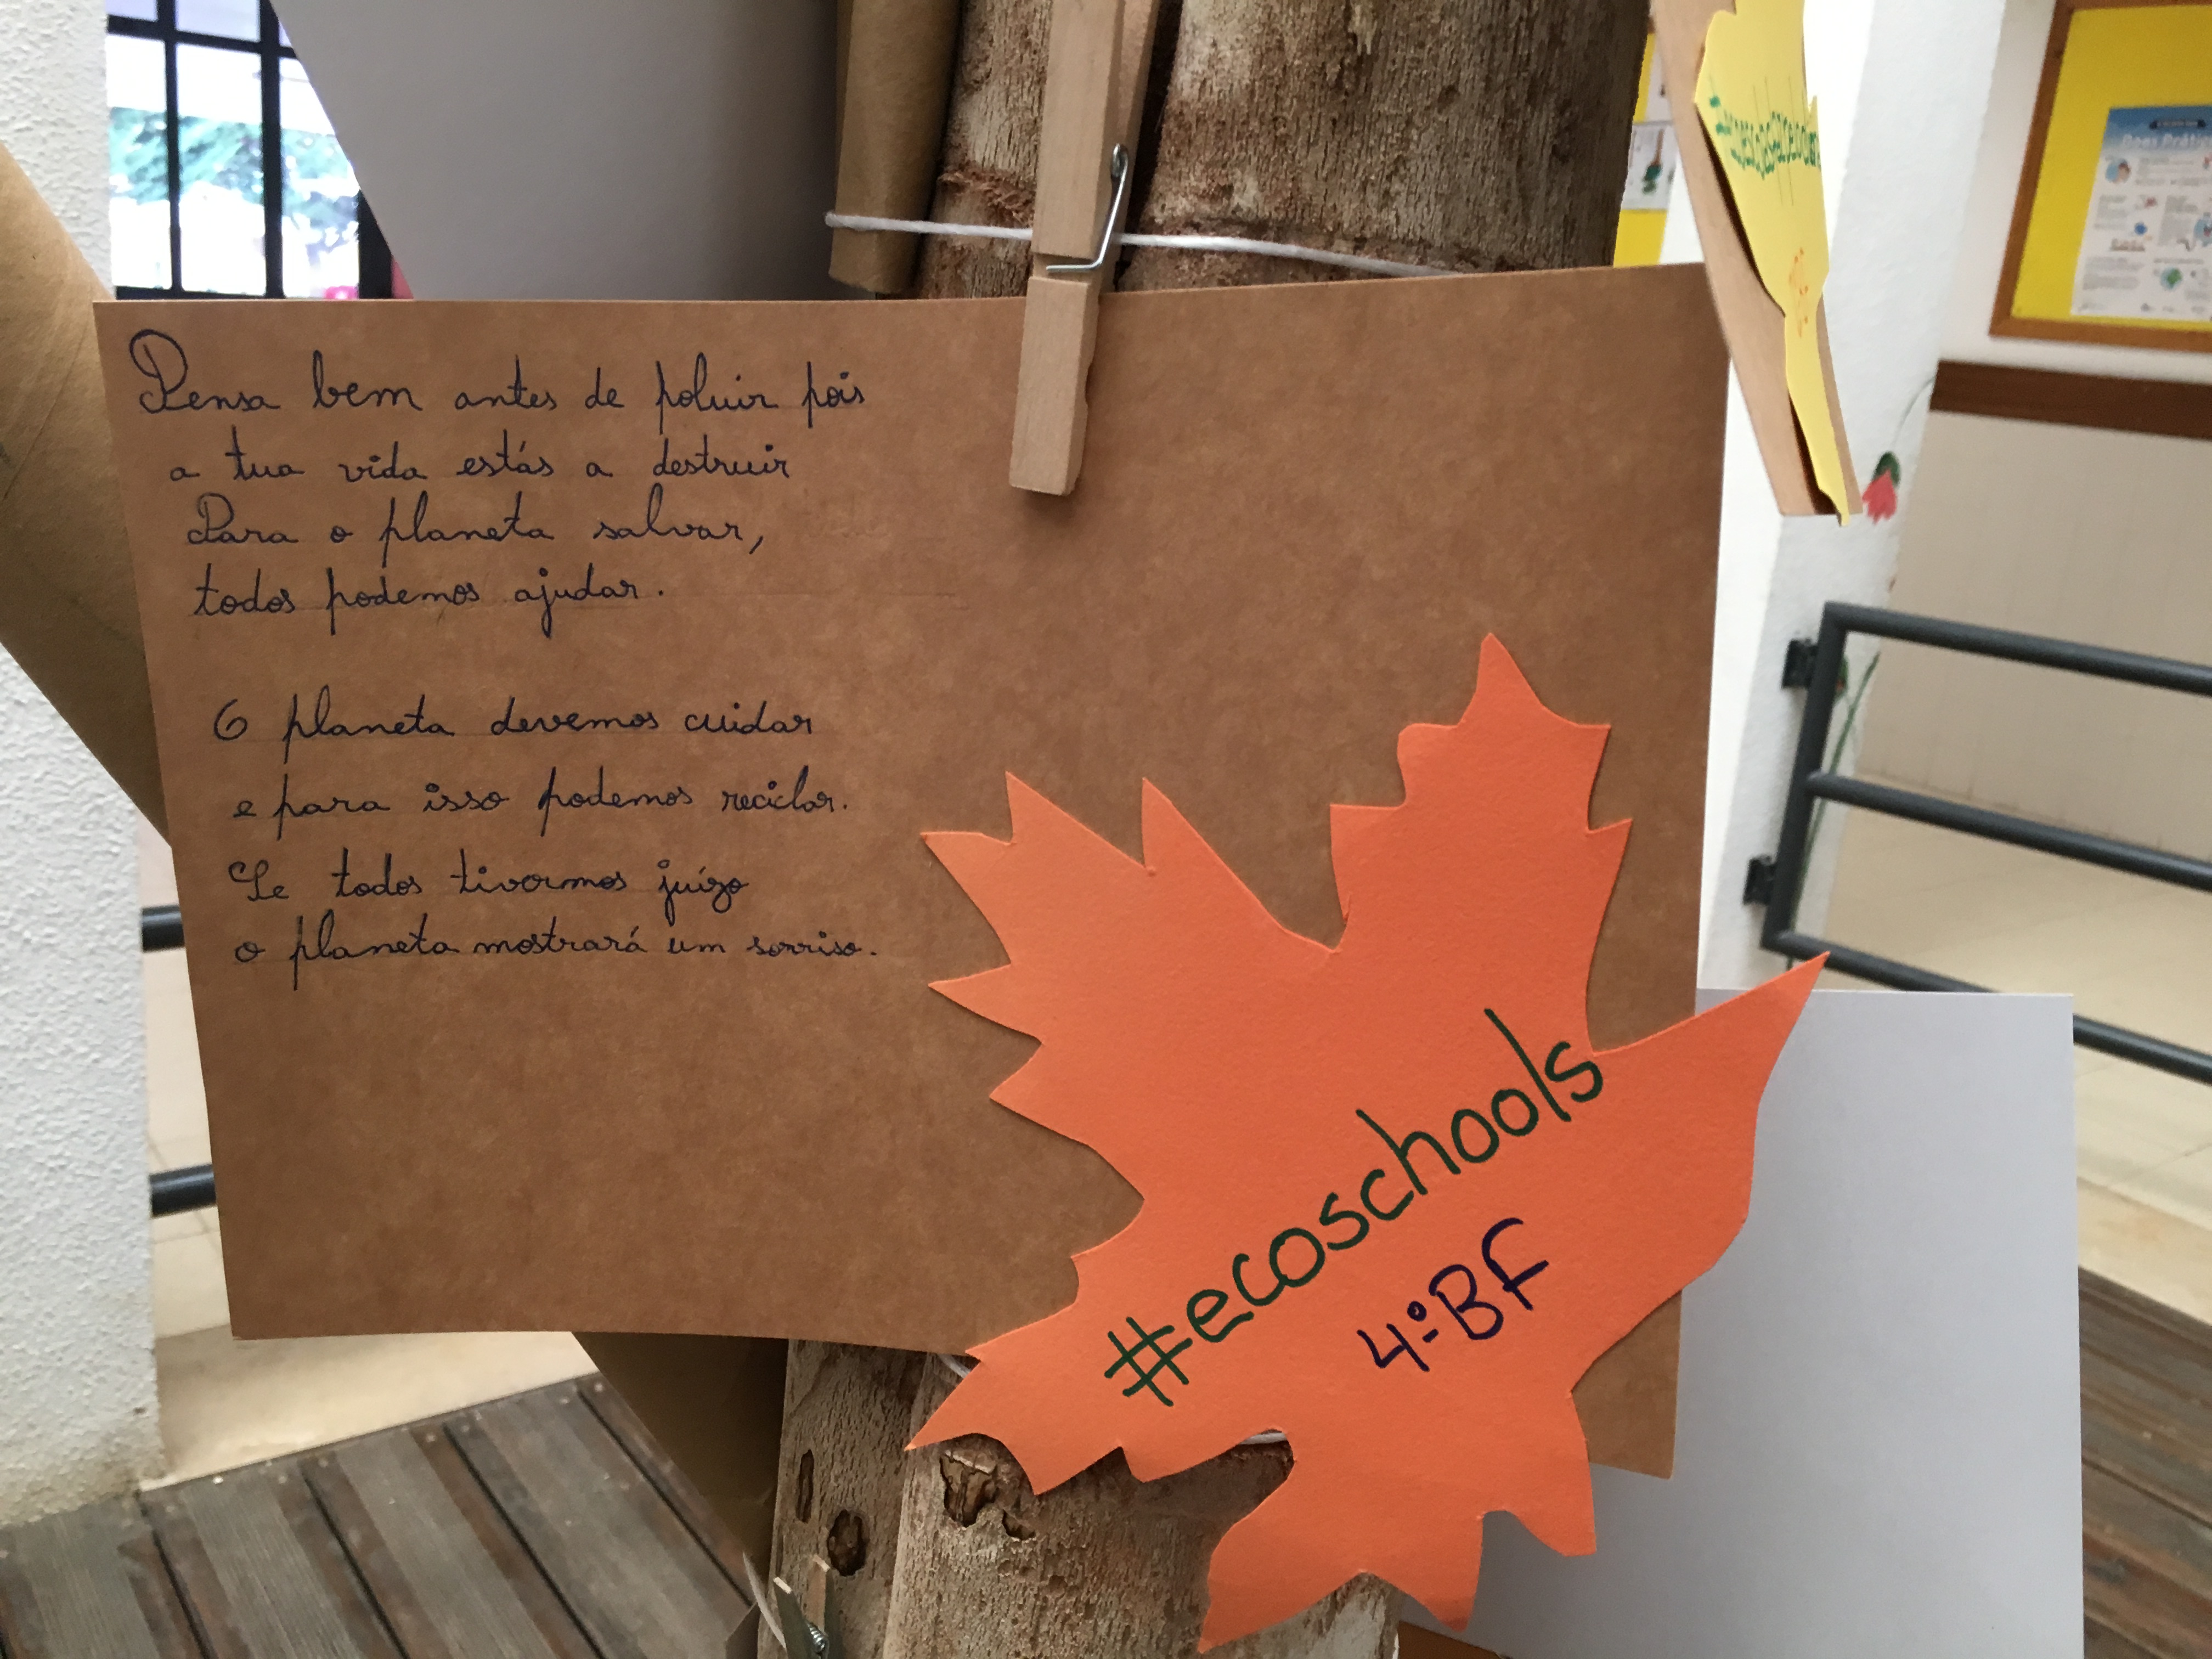 Pensa bem antes de poluir pois
a tua vida estás a destruir
Para o planeta salvar,
todos podemos ajudar.
O planeta devemos cuidar
e para isso podemos reciclar.
Se todos tivermos juízo
o planeta mostrará um sorriso.
#ecoschools
4.º BF